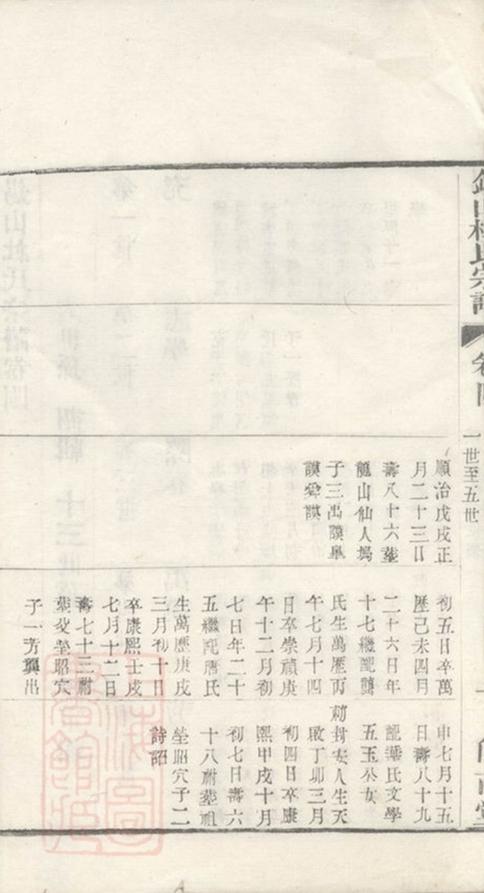 杜氏宗譜
卷四
一世至五世
順治戊戌正
月二十三日
壽八十六葬
龍山仙人塢
子三禹謨臯
謨舜謨
初五日卒萬
歷己未四月
二十六日年
十七繼配龔
氏生萬歷丙
午七月十四
日卒崇禎庚
午十二月初
七日年二十
五繼配唐氏
生萬歷庚戌
三月初十日
卒康熙壬戌
七月十二日
壽七十三祔
葬父塋昭穴
子一芳 出
申七月十五
日壽八十九
配葉氏文學
五玉公女
勅封安人生天
啟丁卯三月
初四日卒康
熙甲戌十月
初七日壽六
十八祔葬祖
塋昭穴子二
詩詔